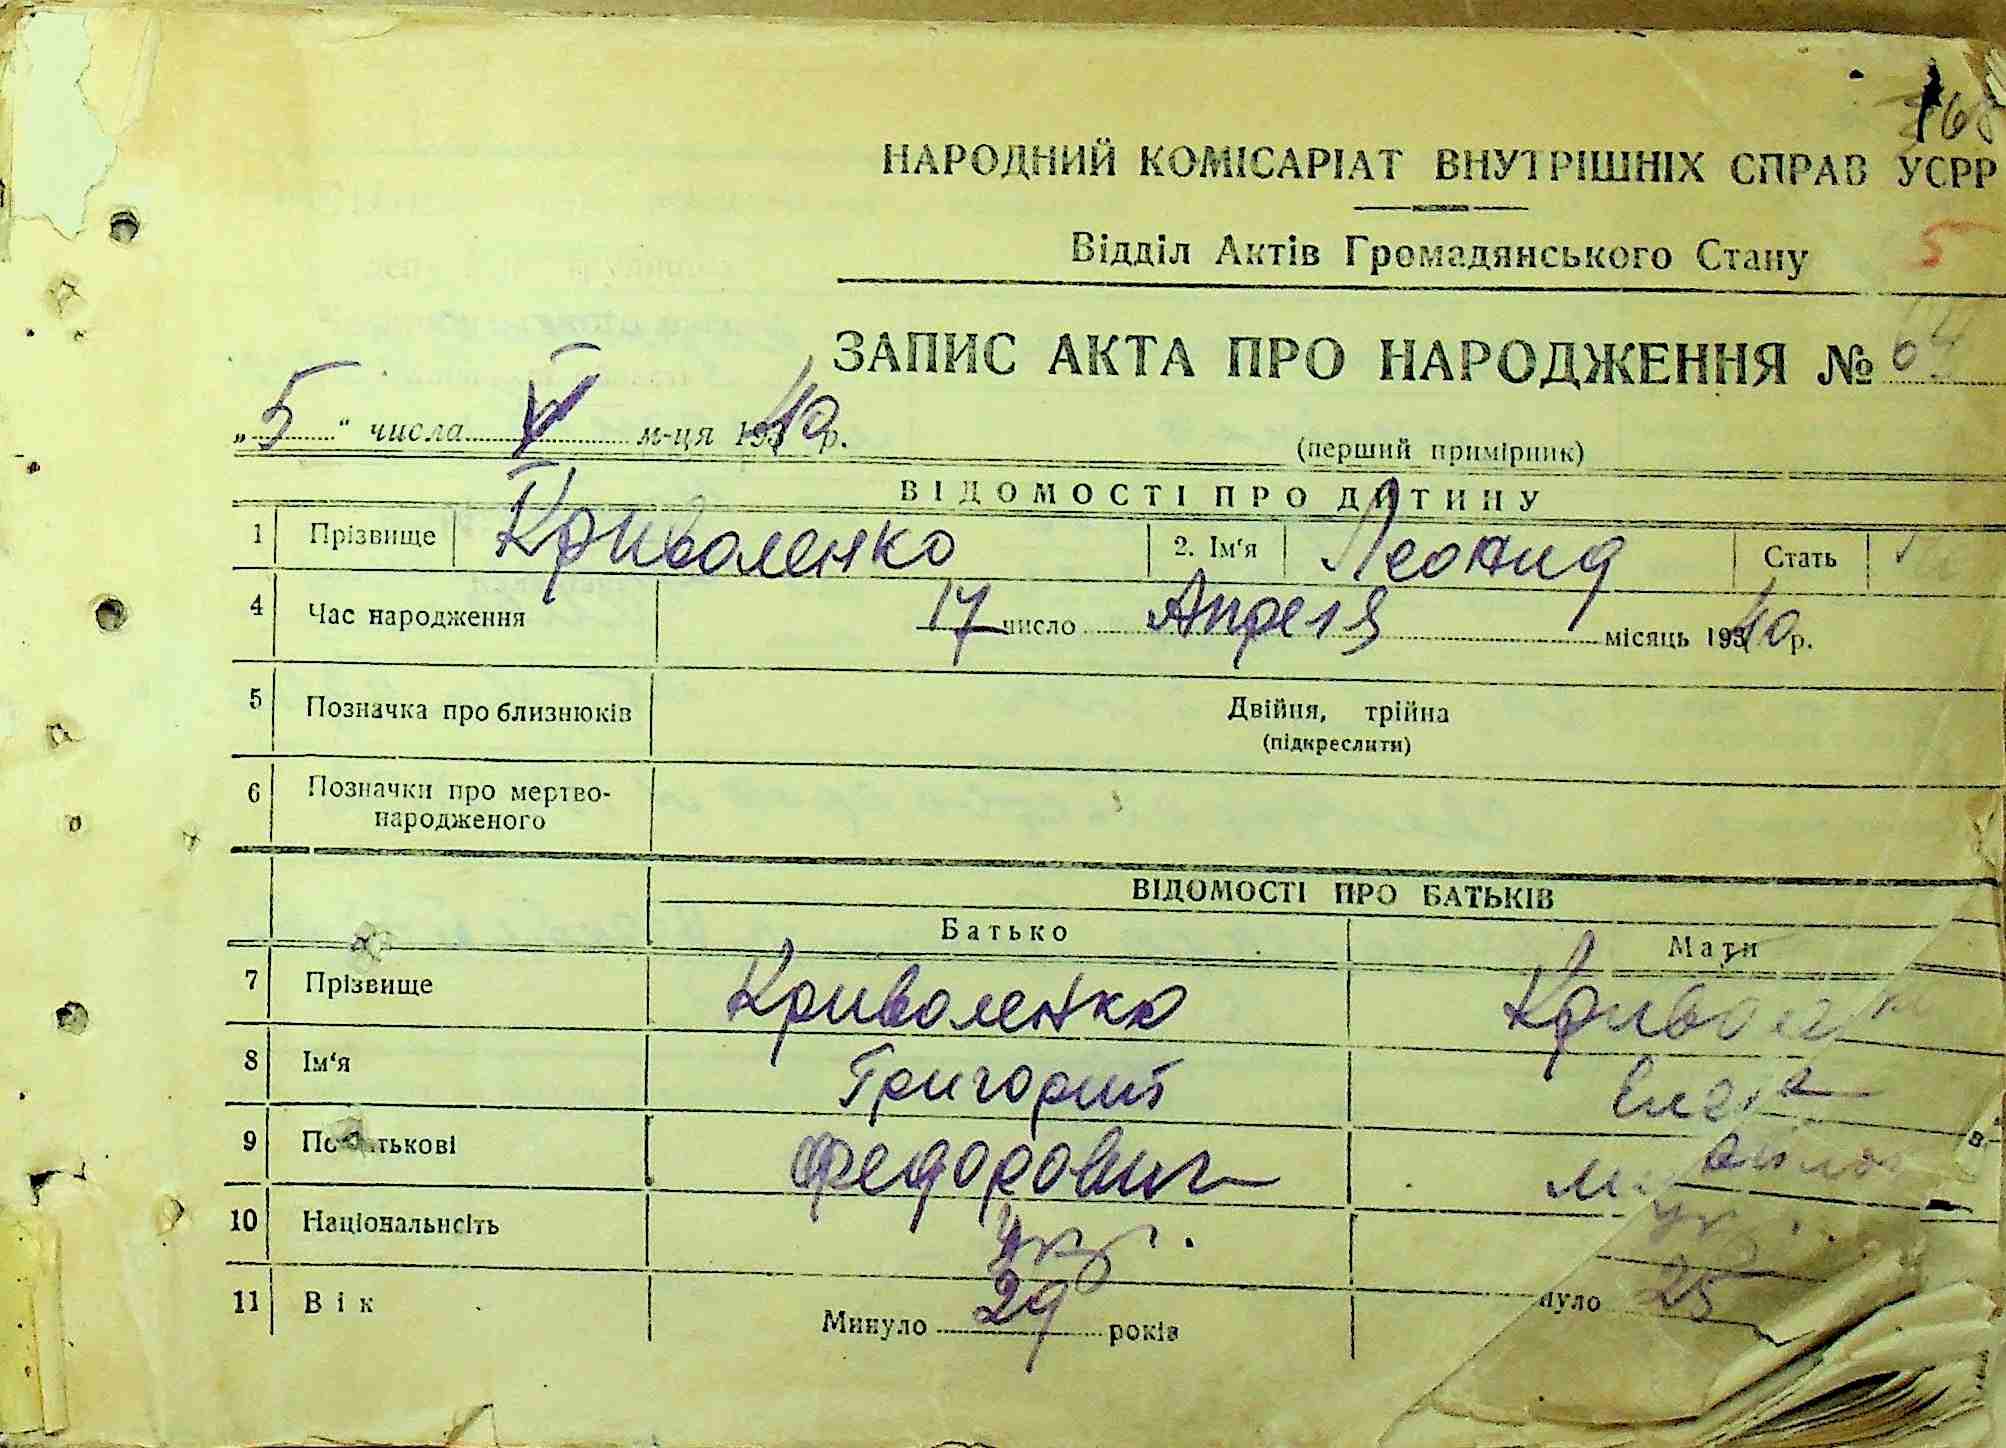 168
НАРОДНИЙ КОМІСАРІАТ ВНУТРІШНІХ СПРАВ УСРР
Відділ Актів Громадянського Стану 5
ЗАПИС АКТА ПРО НАРОДЖЕННЯ № 64
„5“ числа V м-ця 1940 р.
(перший примірник)
ВІДОМОСТІ ПРО ДИТИНУ
1 Прізвище Криволенко 2. Ім‘я Леонид Стать
4 Час народження 17 число Апреля місяць 1940 р.
5 Позначка про близнюків Двійня, трійна
(підкреслити)
6 Позначки про мертво-
народженого
ВІДОМОСТІ ПРО БАТЬКІВ
Батько Мати
7 Прізвище Криволенко
8 Ім‘я Григорий Елена
9 По батькові Федорович
10 Національнсіть Укр. Укр.
11 Вік Минуло 29 років нуло 25